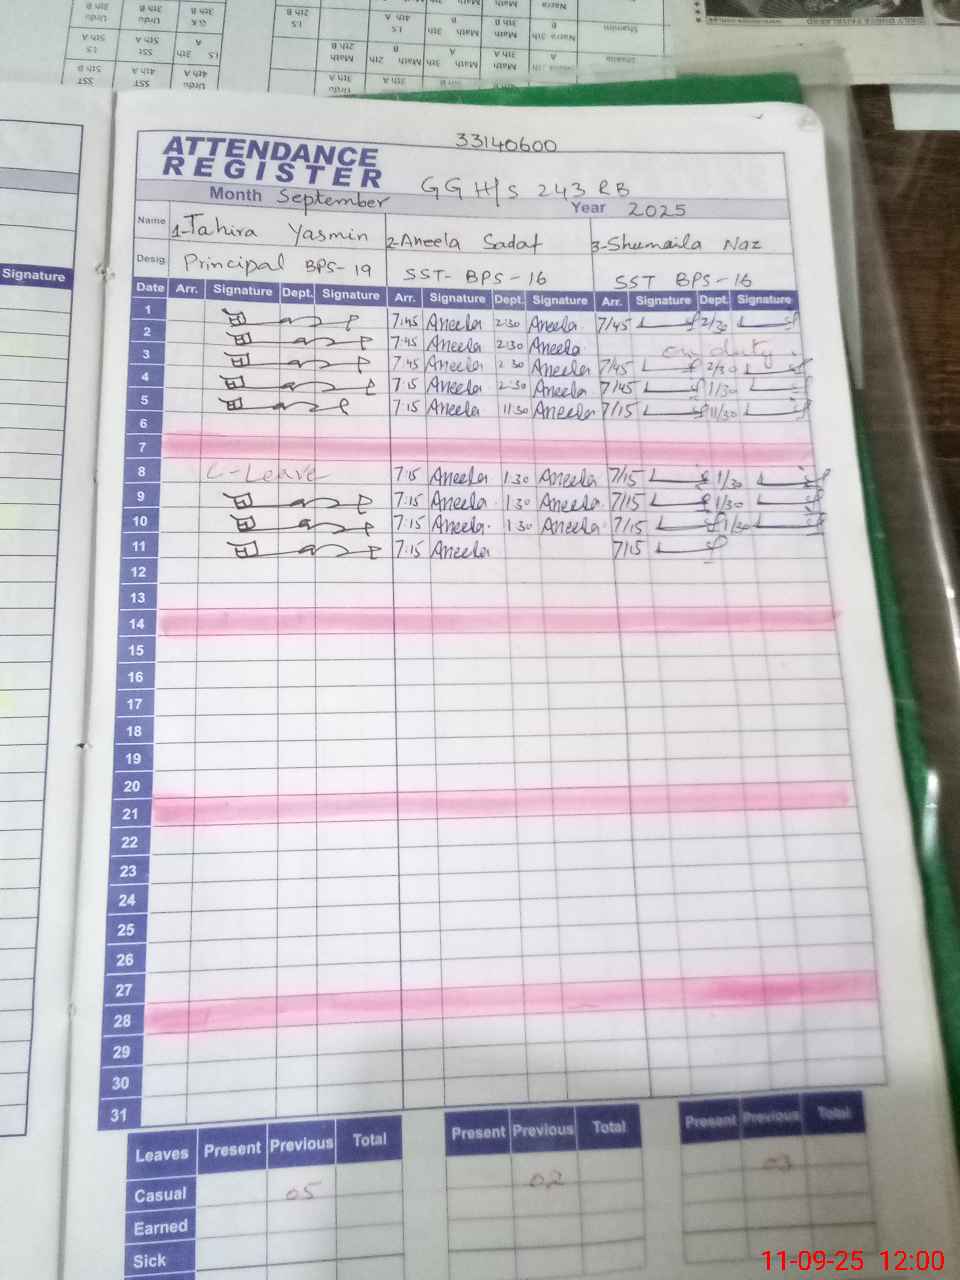 33140600
ATTENDANCE
REGISTER
GGH/S 243 RB
Month September Year 2025
Name 1-Tahira Yasmin 2-Aneela Sadaf 3-Shumaila Naz
Desig Principal BPS-19 SST-BPS-16 SST BPS-16
Signature
Date Arr. Signature Dept. Signature Arr. Signature Dept. Signature Arr. Signature Dept. Signature
1 7:45 Aneela 2:30 Aneela 7/45 2/30
2 7:45 Aneela 2:30 Aneela on duty
3 7:45 Aneela 2:30 Aneela 7/45 2/30
4 7:15 Aneela 2:30 Aneela 7/45 1/30
5 7:15 Aneela 11:30 Aneela 7/15 11/30
6
7
8 C-Leave 7:15 Aneela 1:30 Aneela 7/15 1/30
9 7:15 Aneela 1:30 Aneela 7/15 1/30
10 7:15 Aneela 1:30 Aneela 7/15 1/30
11 7:15 Aneela 7/15
12
13
14
15
16
17
18
19
20
21
22
23
24
25
26
27
28
29
30
31
Leaves Present Previous Total Present Previous Total Present Previous Total
Casual 05 02 03
Earned
Sick
11-09-25 12:00